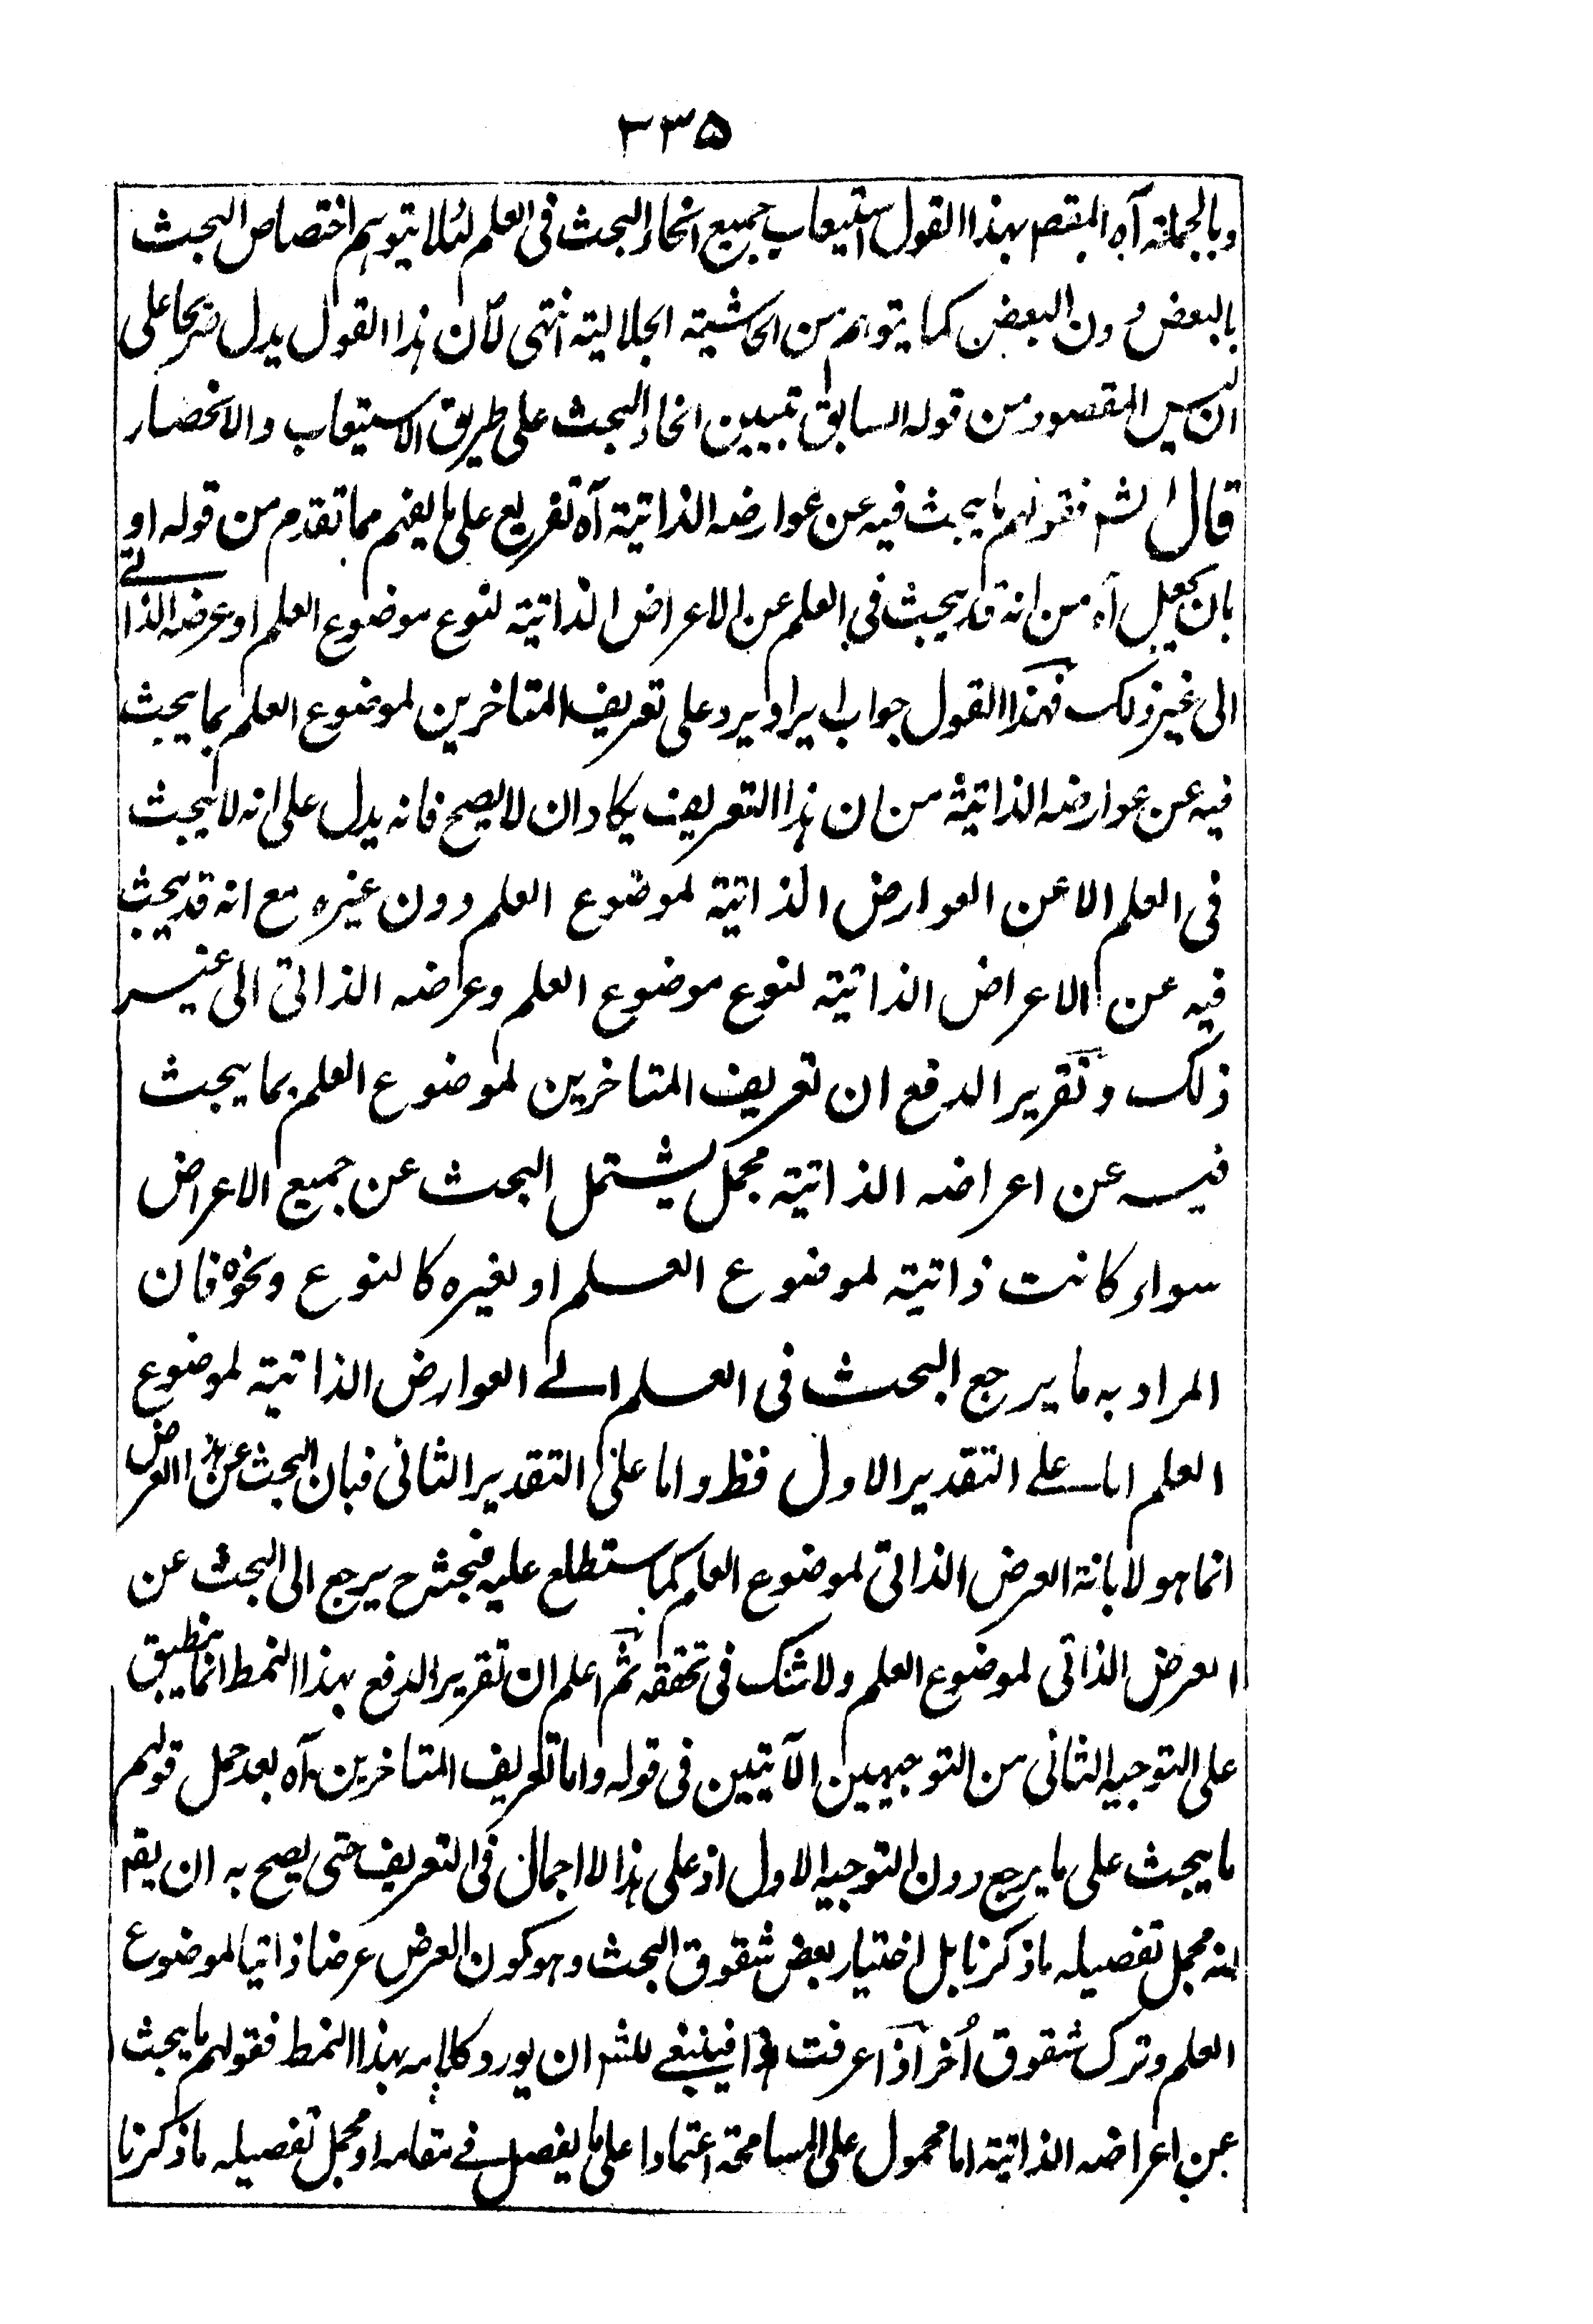 ٣٣٥
وبالجملة آه المقصم بهذا القول استيعاب جميع انحاء البحث فى العلم لئلا يتوهم اختصاص البحث
بالبعض دون البعض كما يتوهم من الحاشية الجلالية انتهى لان هذا القول يدل صريحا على
ان ليس المقصود من قوله السابق تبيين انحاء البحث على طريق الاستيعاب والانحصار
قال الشم فقولهم ما يبحث فيه عن عوارضه الذاتية آه تفريع على ما يفهم مما تقدم من قوله او
بان يجعل آه من انه قد يبحث في العلم عن الاعراض الذاتية لنوع موضوع العلم او عرضه الذاتے
الى غير ذلك فهذا القول جواب ايراد يرد على تعريف المتاخرين لموضوع العلم بما يبحث
فيه عن عوارضه الذاتية من ان هذا التعريف يكاد ان لا يصح فانه يدل على انه لا يبحث
فى العلم الا عن العوارض الذاتية لموضوع العلم دون غيره مع انه قد يبحث
فيه عن الاعراض الذاتية لنوع موضوع العلم وعرضه الذاتى الى غير
ذلك وتقرير الدفع ان تعريف المتاخرين لموضوع العلم بما يبحث
فيه عن اعراضه الذاتية مجمل يشتمل البحث عن جميع الاعراض
سواء كانت ذاتية لموضوع العلم او لغيره كالنوع ونحوه فان
المراد به ما يرجع البحث فى العلم الے العوارض الذاتية لموضوع
العلم اما علے التقدير الاول فظ واما على التقدير الثانى فبان البحث عن هذا العرض
انما هو لابانة العرض الذاتى لموضوع العلم كما ستطلع عليه فبحثه ح يرجع الى البحث عن
العرض الذاتى لموضوع العلم ولا شك فى تحققه ثم اعلم ان تقرير الدفع بهذا النمط انما ينطبق
على التوجيه الثانى من التوجيهين الآتيين فى قوله واما تعريف المتاخرين آه بعد حمل قولهم
ما يبحث على ما يرجع دون التوجيه الاول اذ على هذا لا اجمال فى التعريف حتى يصح به ان يقم
انه مجمل تفصيله ما ذكرنا بل اختيار بعض شقوق البحث وهو كون العرض عرضا ذاتيا لموضوع
العلم وترك شقوق أخر اذا عرفت هذا فينبغے للشم ان يورد كلامه بهذا النمط فقولهم ما يبحث
عن اعراضه الذاتية اما محمول على المسامحة اعتمادا على ما يفصل فے مقامه او مجمل تفصيله ما ذكرنا